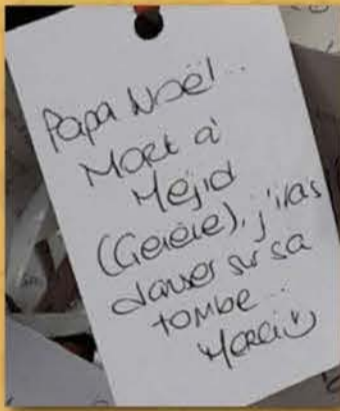 Papa Noël..
Mort à
Mejid
(Gérère), j'iras
danser sur sa
tombe..
Merci